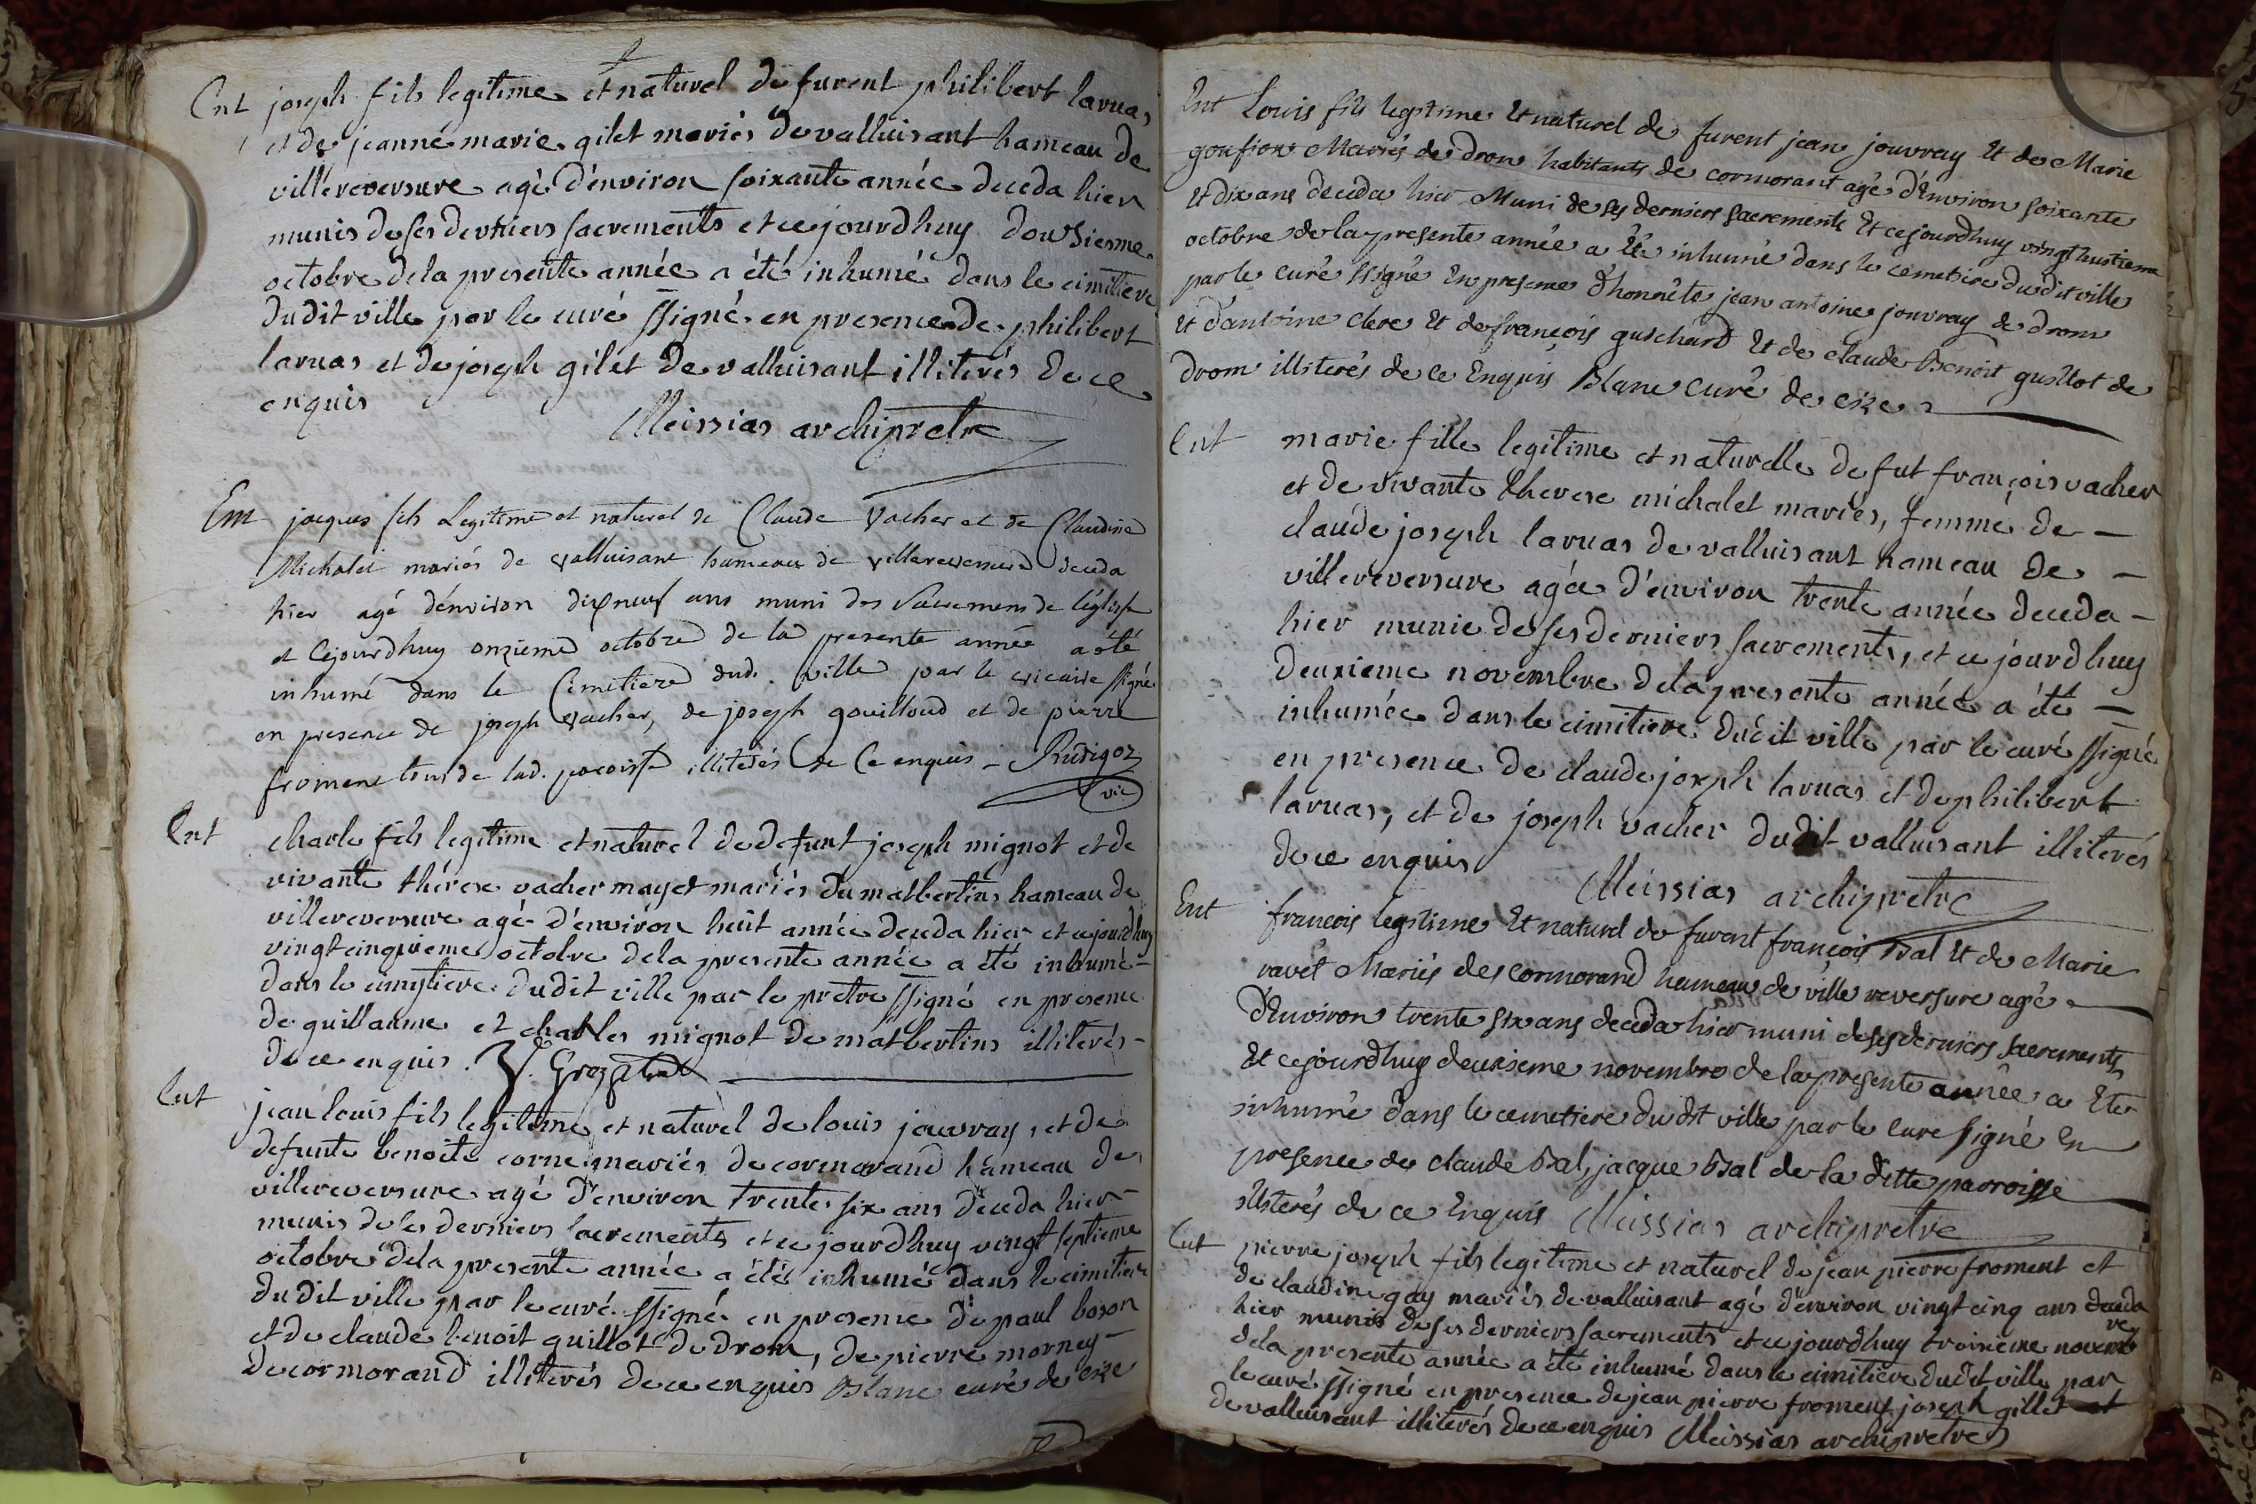 Ent joseph fils legitime et naturel de furent philibert laruas
et de jeanne marie gilet mariés de valluisant hameau de
villereversure agé d'environ soixante année deceda hier
munis de ses derniers sacrements et ce jourdhuy dousiesme
octobre dela presente année a été inhumé dans le cimitiere
dudit ville par le curé ssigné en presence de philibert
laruas et de joseph gilet de valluisant illiterés de ce
enquis
Meissias archipretre
Ent jacques fils Legitime et naturel de Claude Vacher et de Claudine
Michalet mariés de valluisant hameau de villereversure deceda
hier agé d'environ dixneuf ans muni des Sacremens de l'église
et Cejourdhuy onzieme octobre de la presente année a été
inhumé dans le Cimitiere dud. ville par le vicaire ssigné
en presence de joseph vacher, de joseph gouilloud et de pierre
froment tous de lad. paroisse illiterés de Ce enquis – Rudigoz
vic
Ent charle fils legitime et naturel de defunt joseph mignot et de
vivante thérese vacher mayet mariés du matbertins hameau de
villereversure agé d'environ huit année deceda hier et ce jourdhuy
vingtcinquieme octobre dela presente année a été inhumé –
dans le cimitiere dudit ville par le pretre ssigné en presence
de guillaume et charles mignot de matbertins illiterés –
de ce enquis.
Ent jean louis fils legitime et naturel de louis jouvray, et de
defunte benoite corne mariés de cormorand hameau de
villereversure agé d'environ trente six ans deceda hier
munis de ses derniers sacrements et ce jourdhuy vingt septieme
octobre dela presente année a été inhumé dans le cimitiere
dudit ville par le curé ssigné en presence de paul boson
et de claude benoit guillot de drom, de pierre mornay –
de cormorand illiterés de ce enquis Blanc curé de cize
Ent Louis fils legitime Et naturel de furent jean jouvray Et de Marie
goufion Mariés de drom habitants de cormorant agé d'Environ soixante
Et dix ans deceda hier Muni de ses derniers sacrements Et cejourdhuy vingthuitieme
octobre de la presente année a été inhumé dans le cemetiere dudit ville
par le curé ssigné En presence d'honnête jean antoine jouvray de drom
Et d'antoine clerc Et de françois guichard Et de claude Benoit guillot de
drom illiterés de ce Enquis Blanc curé de cize
Ent marie fille legitime et naturelle de fut françois vacher
et de vivante therese michalet mariés, femme de –
claude joseph laruas de valluisant hameau de –
villereversure agée d'environ trente année deceda –
hier munie de ses derniers sacrements, et ce jourdhuy
deuxieme novembre dela presente année a été –
inhumée dans le cimitiere dudit ville par le curé ssigné
en presence de claude joseph laruas et de philibert
laruas, et de joseph vacher dudit valluisant illiterés
de ce enquis
Meissias archipretre
Ent francois legitime Et naturel de furent françois Bal Et de Marie
ravet Mariés de cormorand hameau de ville reversure agé
d'Environ trente six ans deceda hier muni de ses derniers sacrements
Et cejourdhuy deuxieme novembre de la presente année a Eté
inhumé dans le cemetiere dudit ville par le curé ssigné En
presence de claude Bal, jacque Bal de la ditte parroisse
illiterés de ce Enquis Meissias archipretre
Ent pierre joseph fils legitime et naturel de jean pierre froment et
de claudine gay mariés de valluisant agé d'environ vingt cinq ans deceda
hier munis de ses derniers sacrements et ce jourdhuy troisieme novembre
dela presente année a été inhumé dans le cimitiere dudit ville par
le curé ssigné en presence de jean pierre froment joseph gillet et
de valluisant illiterés de ce enquis Meissias archipretre